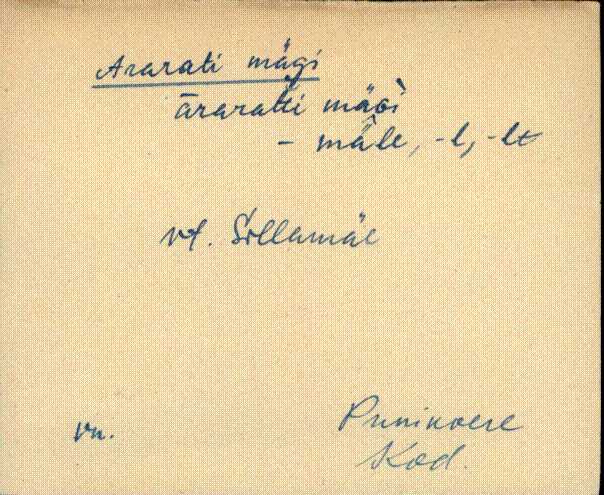 Ararati mägi
āraratti mäǥi
- mäle, -l, -lt
vt. Sillamäe
vn.
Punikvere
Kod.